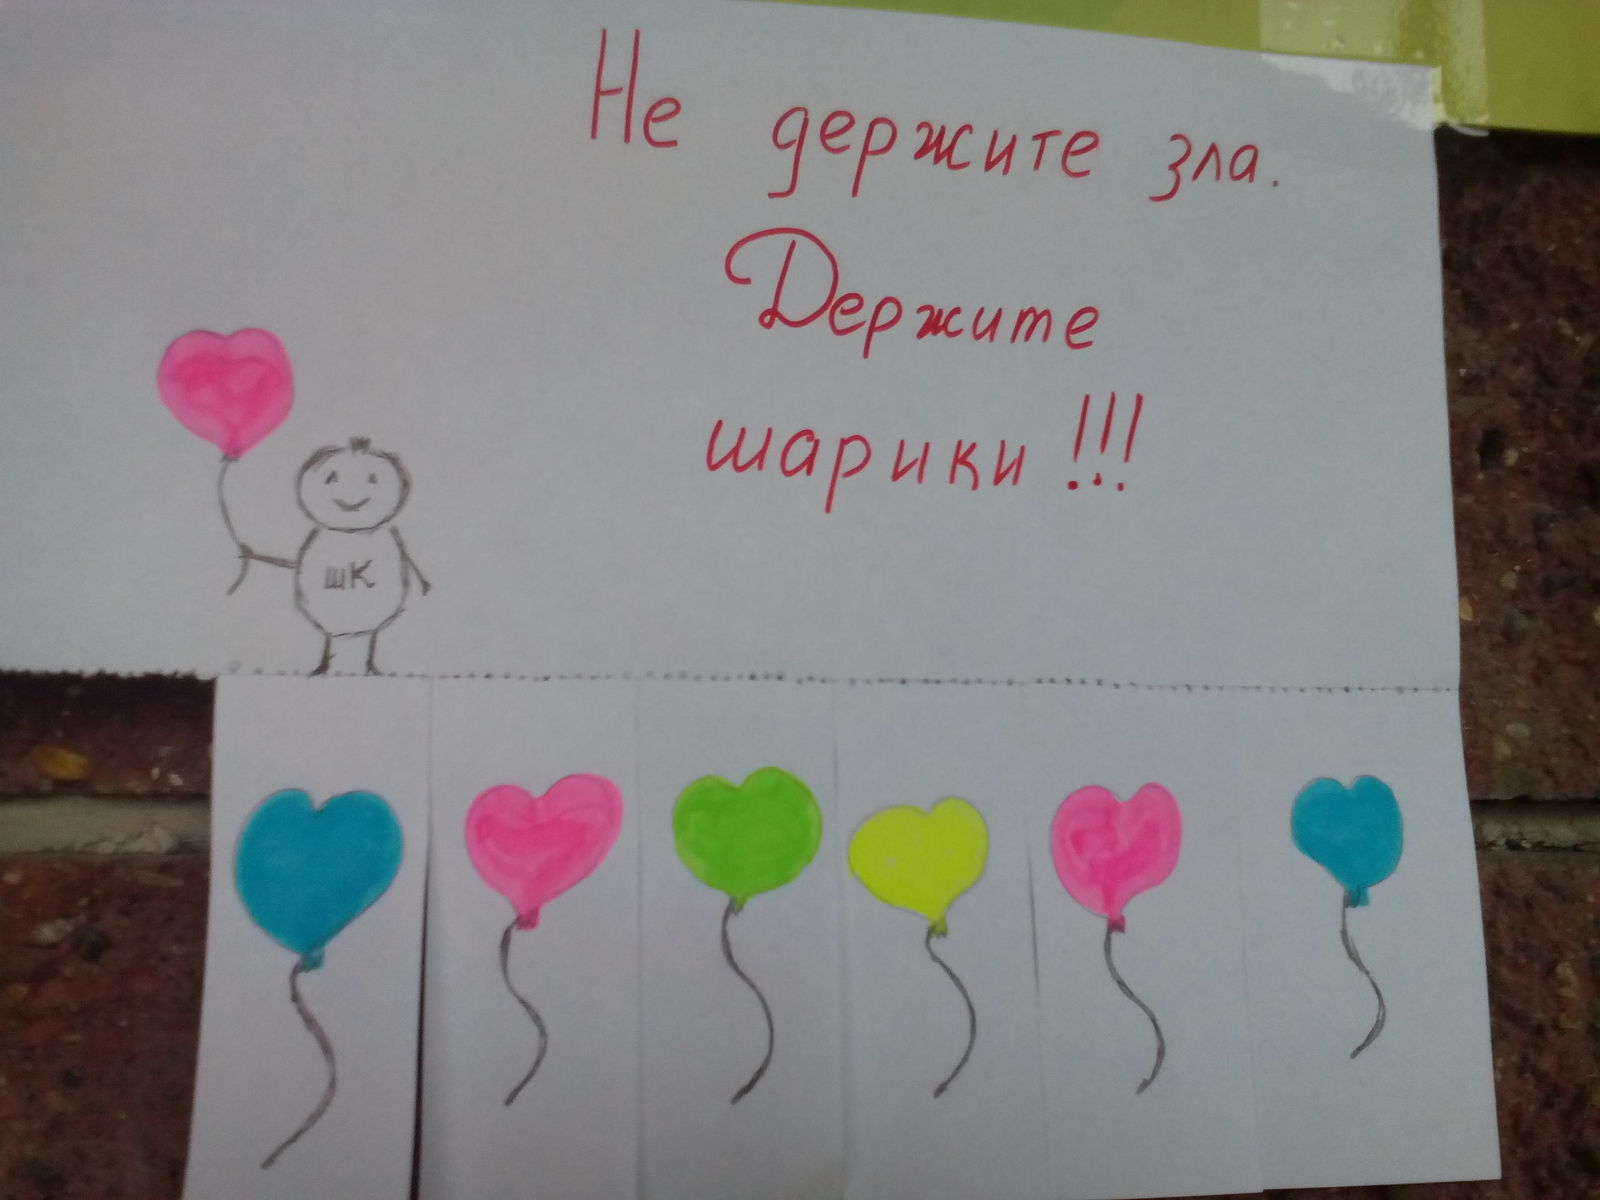 Не держите зла.
Держите
шарики!!!
шк